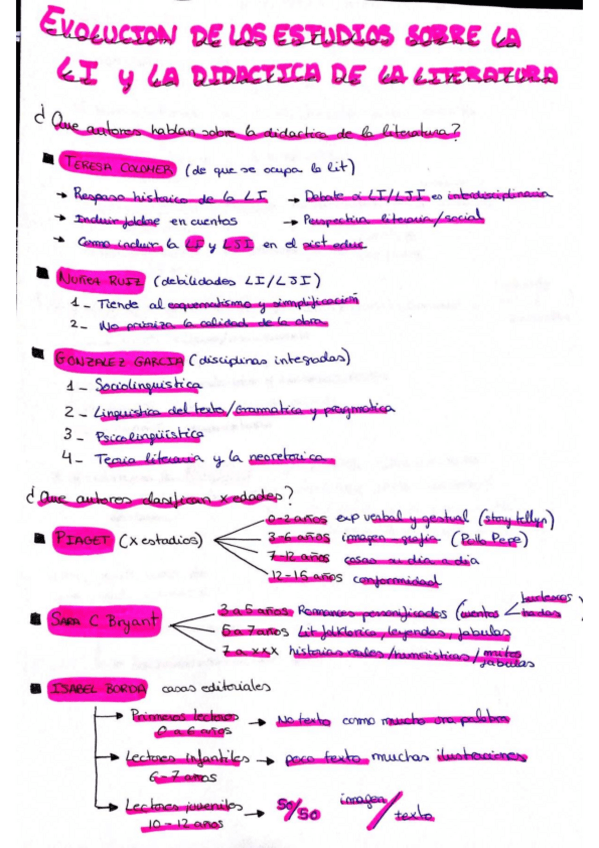 EVOLUCION DE LOS ESTUDIOS SOBRE LA
LI y LA DIDACTICA DE LA LITERATURA
¿Que autores hablan sobre la didactica de la literatura?
TERESA COLOMER (de que se ocupa la lit)
→ Repaso historico de la LI → Debate si LI/LJI es interdisciplinaria
→ Incluir folclore en cuentos → Perspectiva literaria/social
→ Como incluir la LI y LSI en el sist educ
NUÑEZ RUIZ (debilidades LI/LJI)
1 - Tiende al esquematismo y simplificación
2 - No potencia la calidad de la obra
GONZALEZ GARCIA (disciplinas integradas)
1 - Sociolinguistica
2 - Linguistica del texto/Gramatica y pragmatica
3 - Psicolingüistica
4 - Teoria literaria y la neoretorica
¿Que autores clasifican x edades?
PIAGET (x estadios)
0-2 años exp verbal y gestual (story tellyn)
3-6 años imagen-grafia (Pollo Pepe)
7-12 años cosas su dia a dia
12-15 años conformidad
SARA C Bryant
3 a 5 años Romances personificados (cuentos < burlescos
hadas
5 a 7 años Lit folklorica, leyendas, fabulas
7 a xxx historias reales/humoristicas/mitos
fabulas
ISABEL BORDA casas editoriales
→ Primeros lectores → No texto como mucho una palabra
0 a 6 años
→ Lectores infantiles → poco texto muchas ilustraciones
6-7 años
→ Lectores juveniles → 50/50 imagen/texto
10-12 años